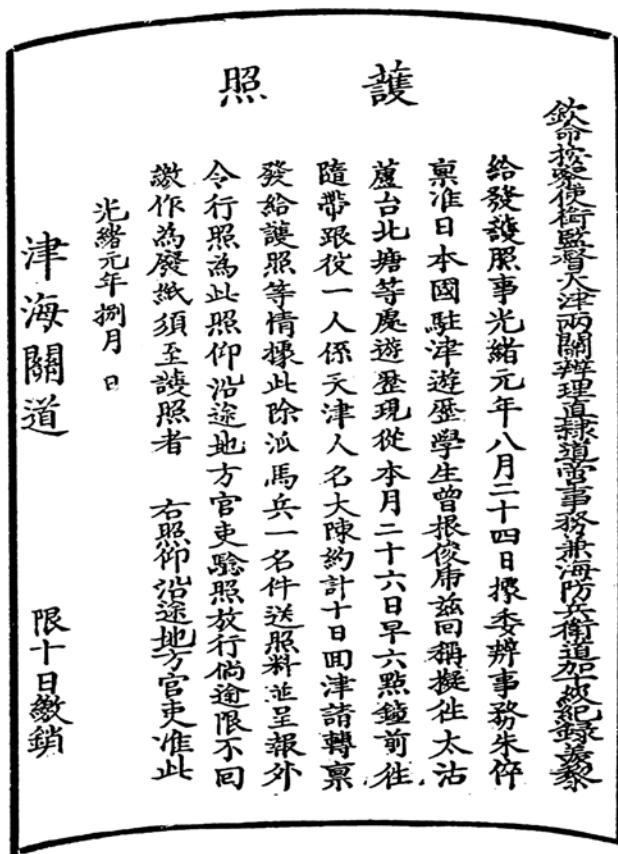 護照
欽命按察使銜監督天津兩關辨理直隸道啻事務兼海防兵衛道加十級紀錄黎
給發護照事光緒元年八月二十四日據委辨事務朱倅
稟准日本國駐津遊歷學生曾根俊茲回稱擬徃太沽
蘆台北塘等處遊歷現從本月二十六日早六點鐘前徃
隨帶跟役一人係天津人名大陳約計十日囬津請轉稟
發給護照等情據此除派馬兵一名件送照料並呈報外
令行照為此照仰沿途地方官吏驗照放行倘逾限不回
繳作為廢紙須至護照者　右照仰沿途地方官吏准此
光緒元年捌月　日
津海關道　限十日繳銷